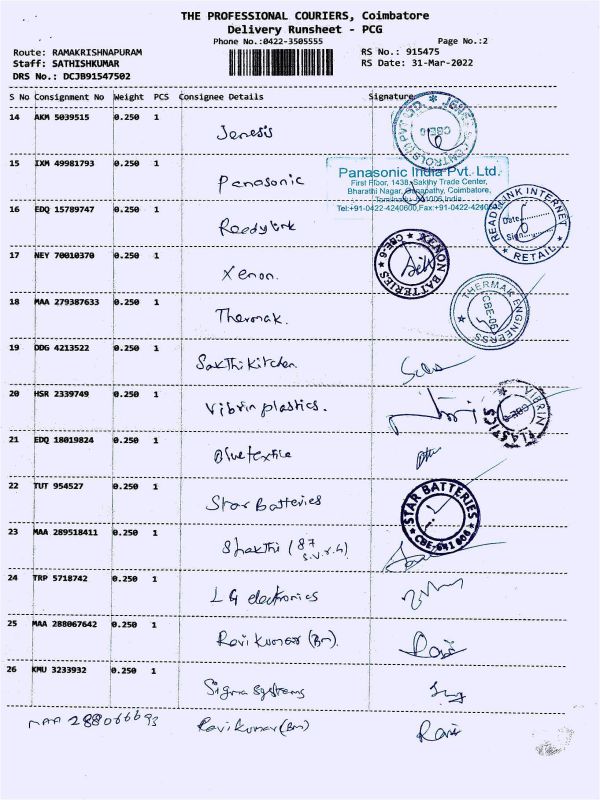 THE PROFESSIONAL COURIERS, Coimbatore
Delivery Runsheet - PCG
Phone No.:0422-3505555
Page No.:2
Route: RAMAKRISHNAPURAM
RS No.: 915475
Staff: SATHISHKUMAR
RS Date: 31-Mar-2022
DRS No.: DCJB91547502
S No Consignment No Weight PCS Consignee Details Signature
14 AKM 5039515 0.250 1 Jenesis
15 IXM 49981793 0.250 1 Panasonic
Panasonic India Pvt. Ltd.
First Floor, 1438, Sakthy Trade Center,
Bharathi Nagar, Ganapathy, Coimbatore,
Tamilnadu 641006, India.
Tel:+91-0422-4240600,Fax:+91-0422-4240
16 EDQ 15789747 0.250 1 Readylink
READYLINK INTERNET
Date
Sign
RETAIL
17 NEY 70010370 0.250 1 Xenon.
XENON BATTERIES
CBE-6
18 MAA 279387633 0.250 1 Thermak.
THERMAK ENGINEERSS
CBE-06
19 DDG 4213522 0.250 1 Sakthi Kitchen
20 HSR 2339749 0.250 1 Vibrin plastics.
VIBRIN PLASTICS
21 EDQ 18019824 0.250 1 Bluetextile
22 TUT 954527 0.250 1 Star Batteries
STAR BATTERIES
CBE-641 006
23 MAA 289518411 0.250 1 Shakthi (87
24 TRP 5718742 0.250 1 LG electronics
25 MAA 288067642 0.250 1 Ravikumar (Bm). Ravi
26 KMU 3233932 0.250 1 Sigma systems
MAA 288066693 Ravikumar (Bm) Ravi